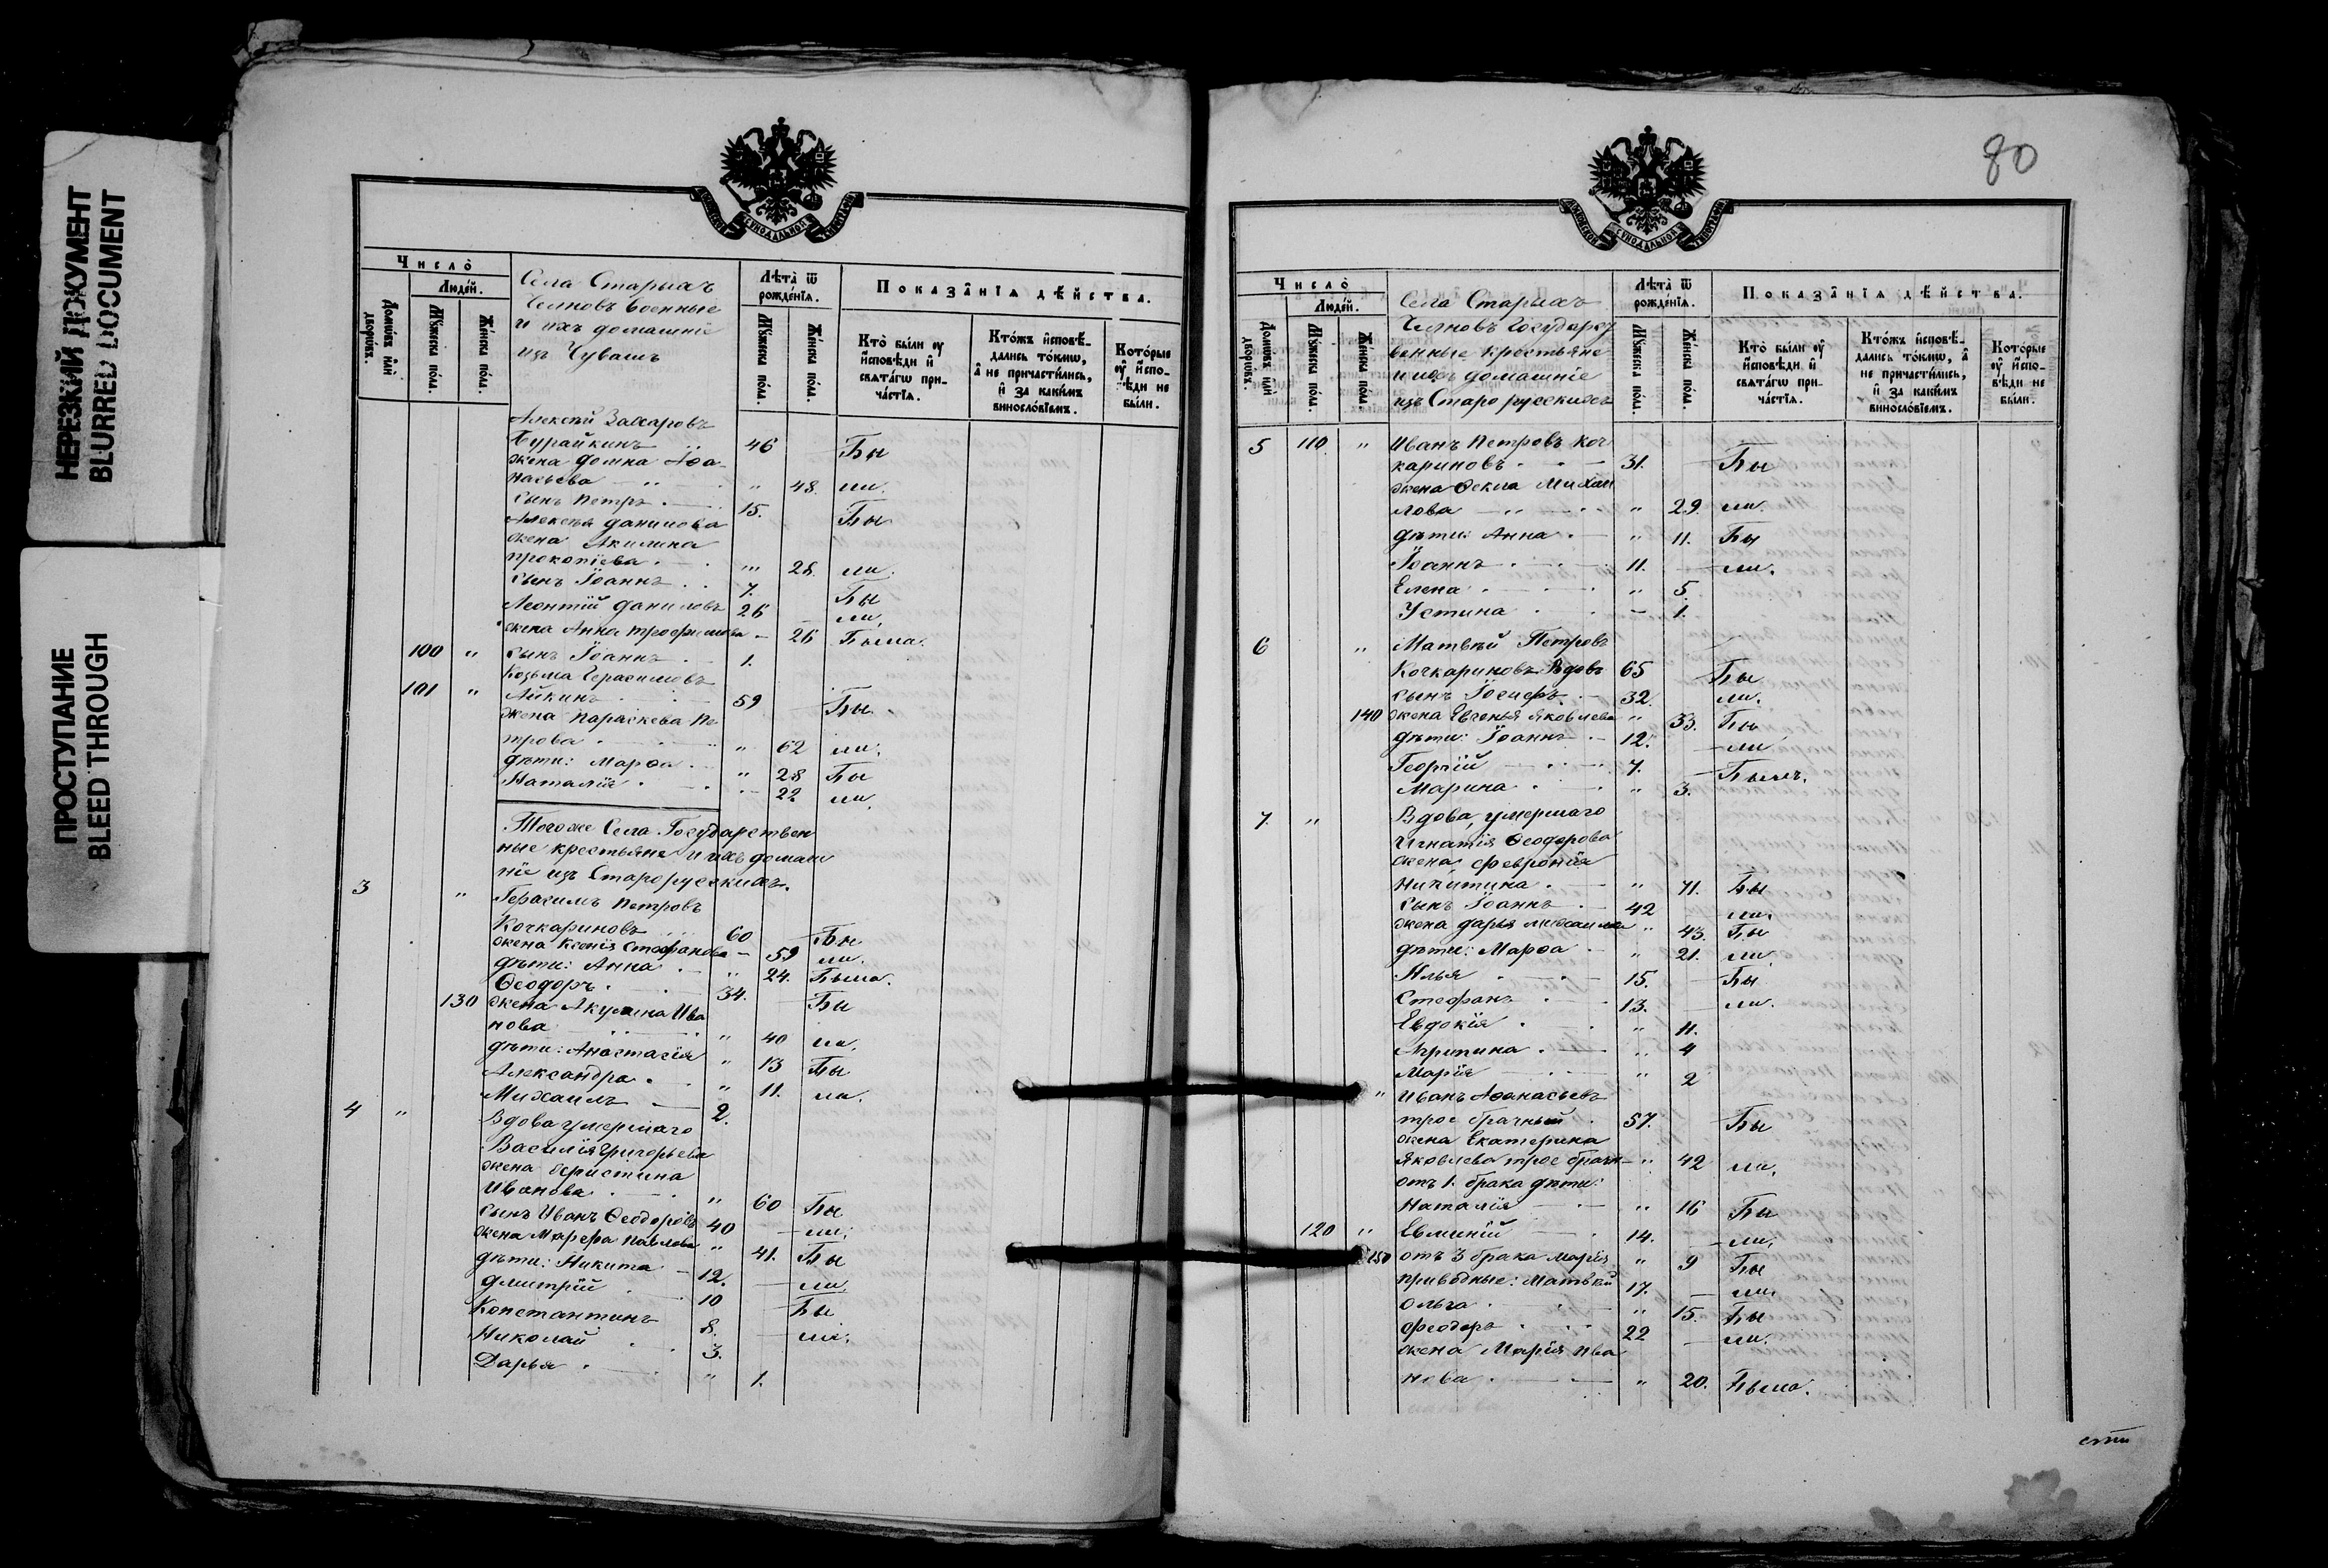 НЕРЕЗКИЙ ДОКУМЕНТ
BLURRED DOCUMENT
ПРОСТУПАНИЕ
BLEED THROUGH
МОСКОВСКОЙ СУНОДАЛЬНОЙ ТИПОГРАФІИ
Число̀
Люде́й.
Домѡ́въ и҆лѝ дворѡ́въ.
Мꙋ́жеска по́ла.
Же́нска по́ла.
Села Старыхъ
Челновъ Военные
и ихъ домашніе
изъ Чувашъ
Лѣта̀ ѿ рожде́нїѧ.
Мꙋ́жеска по́ла.
Же́нска по́ла.
Показа̑нїѧ дѣ́йства.
Кто̀ бы́ли ᲂу҆ и҆сповѣ́ди и҆ свѧта́гѡ прича́стїѧ.
Кто́жъ и҆сповѣ́дались то́кмѡ, а҆ не причасти́лись, и҆ за каки́мъ винослѡ́вїемъ.
Кото́рые ᲂу҆ и҆сповѣ́ди не бы́ли.
Алексѣй Захаровъ
Бурайкинъ 46 Бы
жена Домна Аѳа-
насьева " 48. ли.
сынъ Петръ 15. Бы
Алексѣя Данилова
жена Акилина
Прокопіева " 28. ли.
сынъ Іоаннъ 7. Бы
Леонтій Даниловъ 26 ли.
жена Анна Трофимова 26 Была.
100 " сынъ Іоаннъ 1.
Козьма Герасимовъ
101 " Айкинъ 59 Бы
жена Параскева Пе
трова " 62 ли.
дѣти: Марѳа " 28 Бы
Наталія " 22 ли.
Тогоже Села Государствен
ные крестьяне и ихъ домаш
ніе изъ Старорусскихъ.
3 " Герасимъ Петровъ
Кочкариновъ 60 Бы
жена Ксенія Стефанова 59 ли.
дѣти: Анна " 24. Была.
Ѳеодоръ 34. Бы
130 жена Акулина Ива
нова " 40 ли.
дѣти: Анастасія " 13 Бы
Александра " 11. ли.
Михаилъ 2.
4 " Вдова умершаго
Василія Григорьева
жена
Иванова " 60 Бы
сынъ Иванъ Ѳеодоровъ 40 ли.
жена Марѳа Павлова " 41. Бы
дѣти: Никита 12. ли
Дмитрій 10 Бы
Константинъ 8. ли.
Николай 3.
Дарья " 1.
80
МОСКОВСКОЙ СУНОДАЛЬНОЙ ТИПОГРАФІИ
Число̀
Люде́й.
Домѡ́въ и҆лѝ дворѡ́въ.
Мꙋ́жеска по́ла.
Же́нска по́ла.
Села Старыхъ
Челновъ Государст
венные крестьяне
и ихъ домашніе
изъ Старорусскихъ
Лѣта̀ ѿ рожде́нїѧ.
Мꙋ́жеска по́ла.
Же́нска по́ла.
Показа̑нїѧ дѣ́йства.
Кто̀ бы́ли ᲂу҆ и҆сповѣ́ди и҆ свѧта́гѡ прича́стїѧ.
Кто́жъ и҆сповѣ́дались то́кмѡ, а҆ не причасти́лись, и҆ за каки́мъ винослѡ́вїемъ.
Кото́рые ᲂу҆ и҆сповѣ́ди не бы́ли.
5 110. " Иванъ Петровъ Коч
кариновъ 31. Бы
жена Ѳекла Михаи
лова " 29. ли.
дѣти: Анна " 11. Бы
Іоаннъ 11. ли.
Елена " 5.
Устина 1.
6 " Матвѣй Петровъ
Кочкариновъ Вдовъ 65 Бы
сынъ Іосифъ 32. ли.
140 жена Евгенья Яковлева " 33. Бы
дѣти: Іоаннъ 12. ли
Георгій 7. Былъ.
Марина " 3.
7. " Вдова умершаго
Игнатія Ѳеодорова
жена Февронія
Никитина " 71. Бы
сынъ Іоаннъ 42 ли.
жена Дарья Михаилова " 43. Бы
дѣти: Марѳа " 21. ли.
Илья 15. Бы
Стефанъ 13. ли.
Евдокія " 11.
Агрипина " 4
Марія " 2
" Иванъ Аѳанасьевъ
троебрачный 57. Бы
жена Екатерина
Яковлева троебрачн " 42 ли.
отъ 1. брака дѣти:
Наталія " 16 Бы
120 " Евминій 14. ли.
150 отъ 3 брака Марія " 9 Бы
приводные: Матвѣй 17. ли.
Ольга " 15. Бы
Феодоръ 22 ли.
жена Марія Ива
нова " 20. Была.